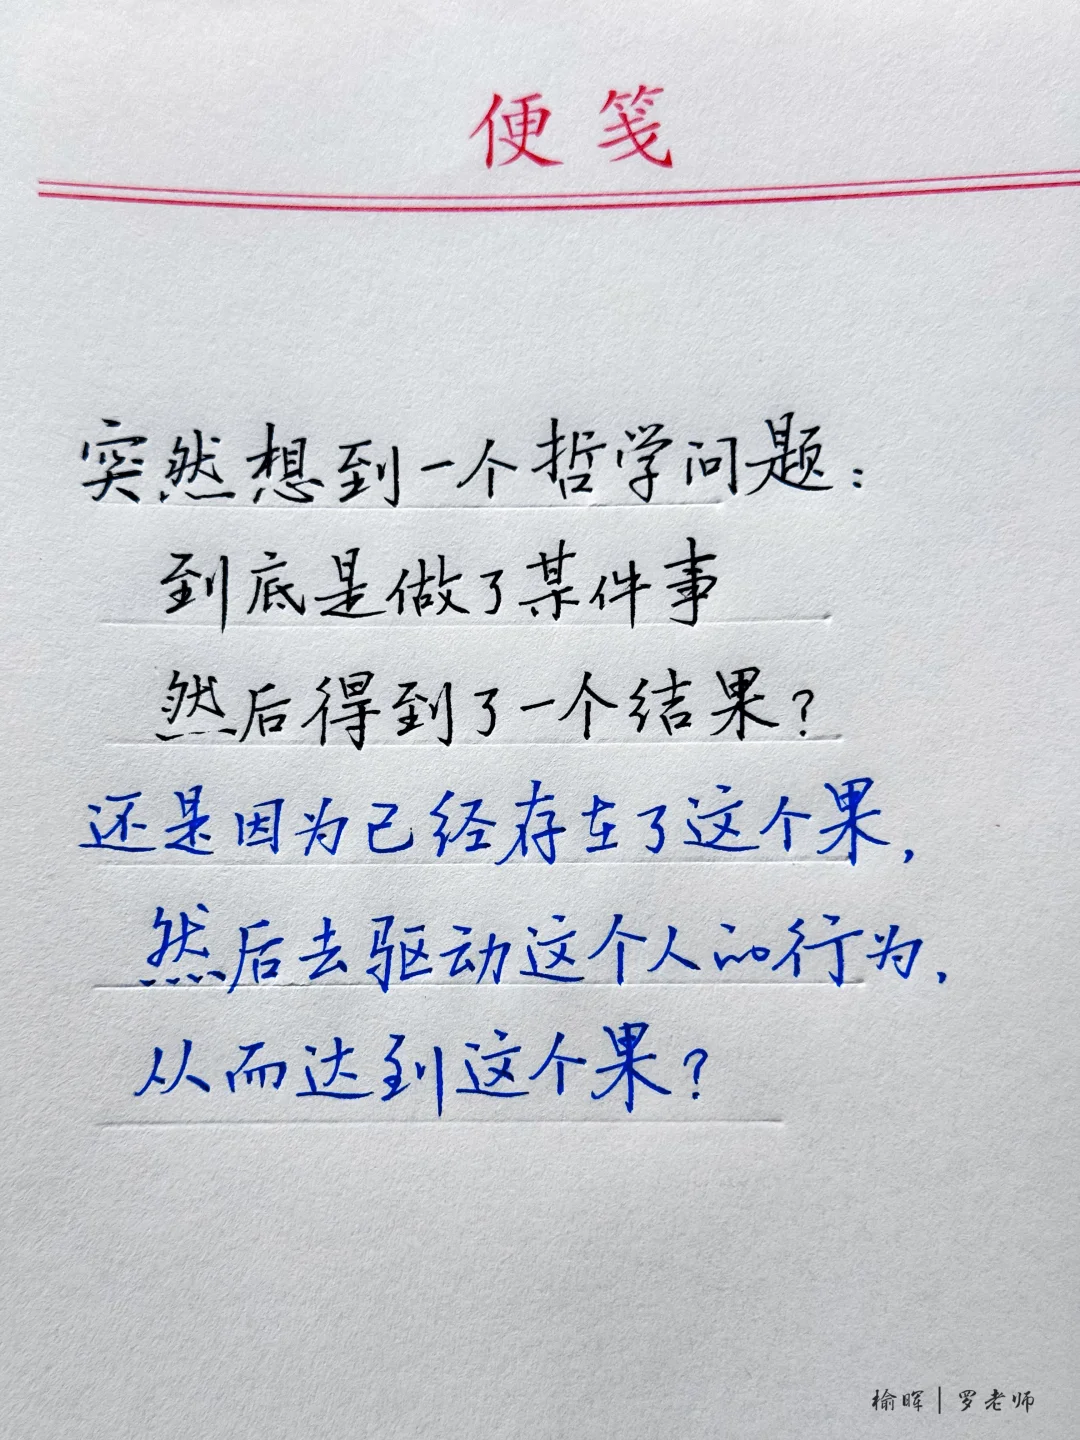 便笺
突然想到一个哲学问题：
到底是做了某件事
然后得到了一个结果？
还是因为已经存在了这个果，
然后去驱动这个人的行为，
从而达到这个果？
榆晖|罗老师